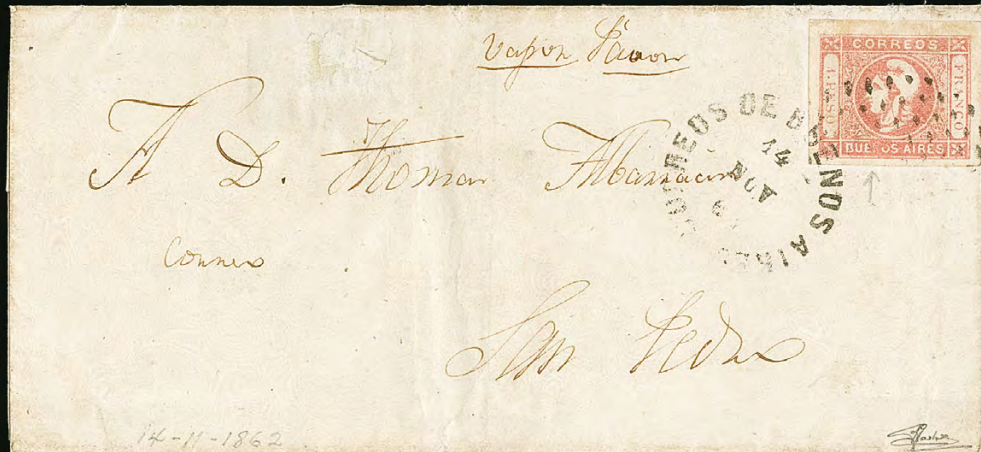 Vapor Pavon
CORREOS
1. PESO
FRANCO
BUENOS AIRES
CORREOS DE BUENOS AIRES
14
NOV
A D. Thomas
Correo
San Pedro
14-11-1862